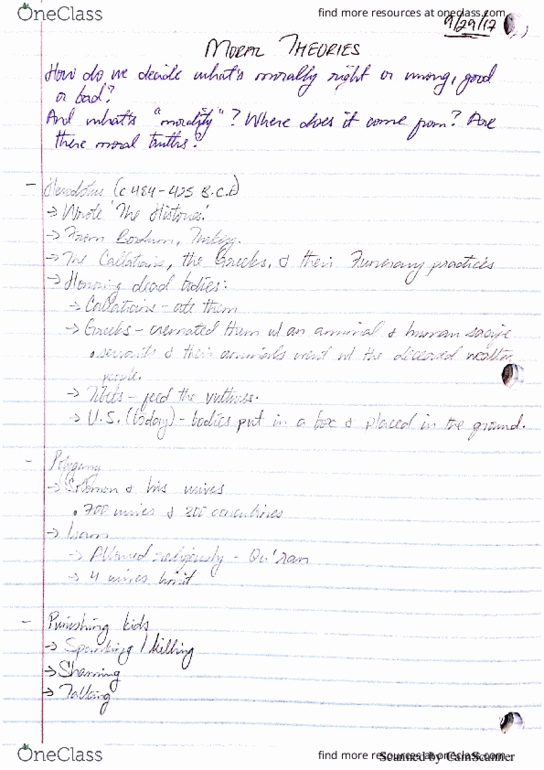 OneClass
find more resources at oneclass.com
9/29/17
MORAL THEORIES
How do we decide what's morally right or wrong, good
or bad?
And what's "morality"? Where does it come from? Are
there moral truths?
- Herodotus (c 484-425 B.C.E)
→ Wrote 'The Histories'
→ From Bodrum, Turkey.
→ The Callatians, the Greeks, & their Funerary practices
→ Honoring dead bodies:
→ Callatians - ate them
→ Greeks - cremated them w/ an animal & human
• servants & their animals went w/ the deceased
people.
→ Tibets - feed the vultures.
→ U.S. (today) - bodies put in a box & placed in the ground.
- Polygamy
→ Solomon & his wives
• 700 wives & 200 concubines
→ Islam
→ Allowed religiously - Qu'ran
→ 4 wives limit
- Punishing kids
→ Spanking / killing
→ Shaming
→ Talking
OneClass
find more resources at oneclass.com
Scanned by CamScanner